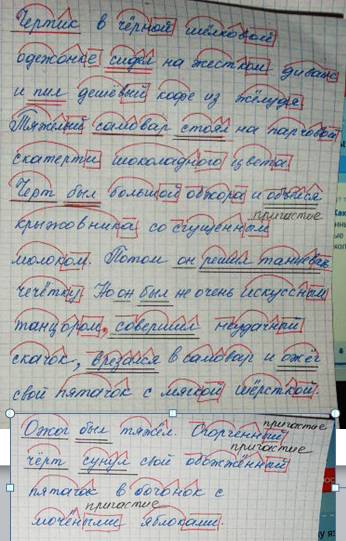 Чертик в чёрной шёлковой
одежонке сидел на жестком диване
и пил дешёвый кофе из жёлудя.
Тяжёлый самовар стоял на парчовой
скатерти шоколадного цвета.
Черт был большой обжора и объелся
крыжовника со сгущенным
причастие
молоком. Потом он решил танцевать
чечётку. Но он был не очень искусным
танцором, совершил неудачный
скачок, врезался в самовар и ожёг
свой пятачок с мягкой шёрсткой.
Ожог был тяжёл. Огорченный
причастие
чёрт сунул свой обожжённый
причастие
пятачок в бочонок с
мочёными яблоками.
причастие